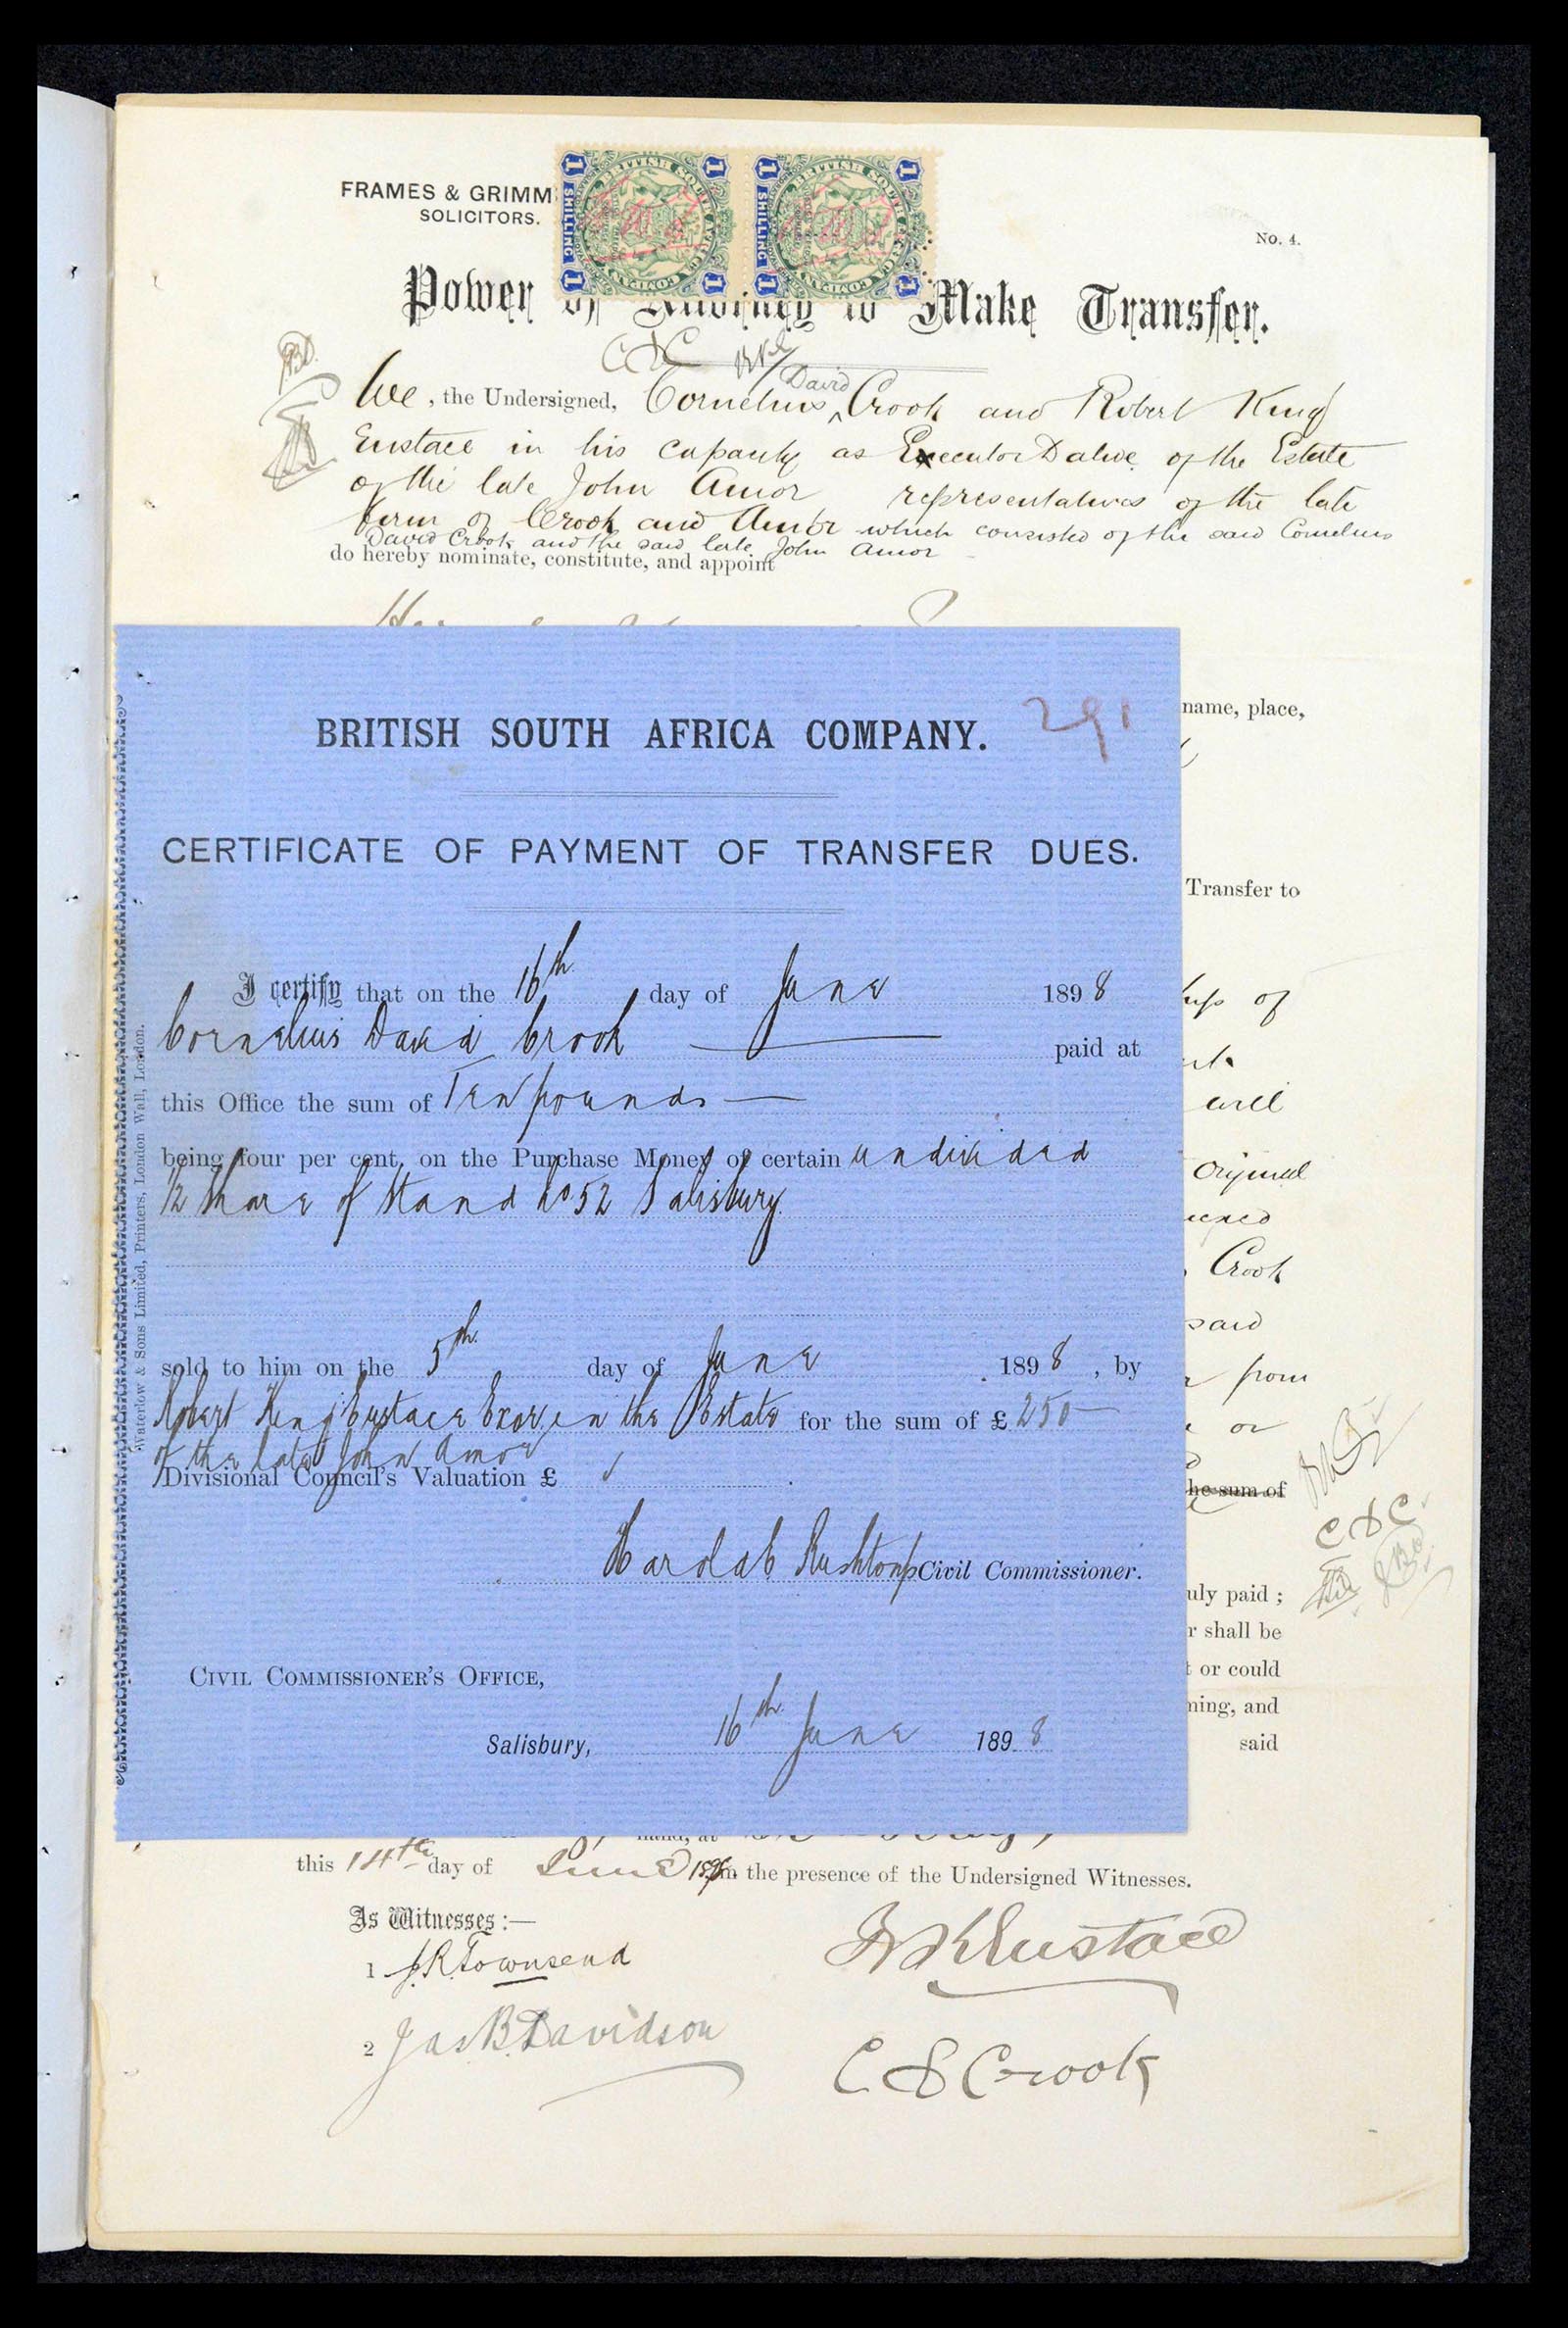 FRAMES & GRIMM
SOLICITORS.
1 SHILLING 1
BRITISH SOUTH AFRICA COMPANY
1 SHILLING 1
BRITISH SOUTH AFRICA COMPANY
No. 4.
Power of Attorney to Make Transfer.
CDC
David
We, the Undersigned, Cornelius Crook and Robert King
Eustace in his capacity as Executor Dative of the Estate
of the late John Amor representatives of the late
firm of Crook and Amor which consisted of the said Cornelius
David Crook and the said late John Amor
do hereby nominate, constitute, and appoint
name, place,
Transfer to
of
will
Original
Crook
said
from
or
he sum of
CDC
uly paid ;
r shall be
t or could
ning, and
said
BRITISH SOUTH AFRICA COMPANY.
291
CERTIFICATE OF PAYMENT OF TRANSFER DUES.
I certify that on the 16th day of June 1898
Cornelius David Crook paid at
this Office the sum of Ten pounds —
being four per cent. on the Purchase Money of certain undivided
1/2 share of Stand No 52 Salisbury.
sold to him on the 5th day of June 1898, by
Robert King Eustace Exor. in the Estate for the sum of £ 250 —
of the late John Amor
Divisional Council's Valuation £
Civil Commissioner.
CIVIL COMMISSIONER'S OFFICE,
Salisbury, 16th June 1898
Waterlow & Sons Limited, Printers, London Wall, London.
hand, at
this 14th day of June 1898 in the presence of the Undersigned Witnesses.
As Witnesses :—
1 J.R. Townsend
R K Eustace
2 Jas B Davidson
C D Crook